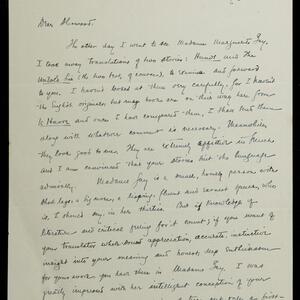 Dear Sherwood:
The other day I went to see Madame Marguerite Gay.
I took away translations of two stories: Hands and The
Untold Lie (the two best, of course), to revise and forward
to you. I haven't looked at them very carefully, for I haven't
the English originals, but my books are on their way here from
Le Havre and once I have compared them, I shall send them
along with whatever comment is necessary. Meanwhile
they look good to me. They are extremely effective in French
and I am convinced that your stories suit the language
admirably. Madame Gay is a small, homely person with
bad legs, a big nose, a lisping, fluent and earnest speech, who
is, I should say, in her thirties. But if knowledge of
literature and critical feeling for it count, if you want of
your translator wholehearted appreciation, accurate, instinctive
insight into your meaning and honest, deep enthusiasm
for your work you have these in Madame Gay. I was
greatly impressed with her intelligent conception of your